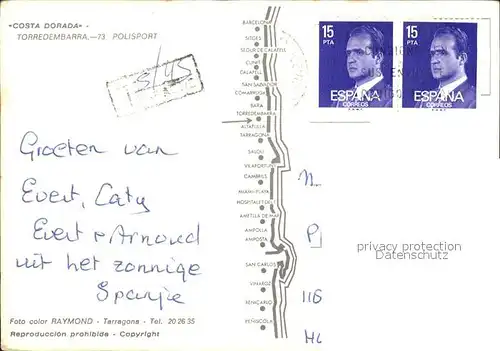 «COSTA DORADA» -
TORREDEMBARRA.—73. POLISPORT
T
5/45
Groeten van
Evert, Caty
Evert + Arnoud
uit het zonnige
Spanje
Foto color RAYMOND - Tarragona - Tel. 20 26 35
Reproducción prohibida - Copyright
BARCELONA
SITGES
SEGUR DE CALAFELL
CUNIT
CALAFELL
SAN SALVADOR
COMARRUGA
BARA
TORREDEMBARRA
ALTAFULLA
TARRAGONA
SALOU
VILAFORTUNY
CAMBRILS
MIAMI-PLAYA
HOSPITALET DEL
AMETLLA DE MAR
AMPOLLA
AMPOSTA
SAN CARLOS
VINAROZ
BENICARLO
PEÑISCOLA
15
PTA
ESPAÑA
CORREOS
15
PTA
ESPAÑA
CORREOS
privacy protection
VEREINSVERWALTUNG